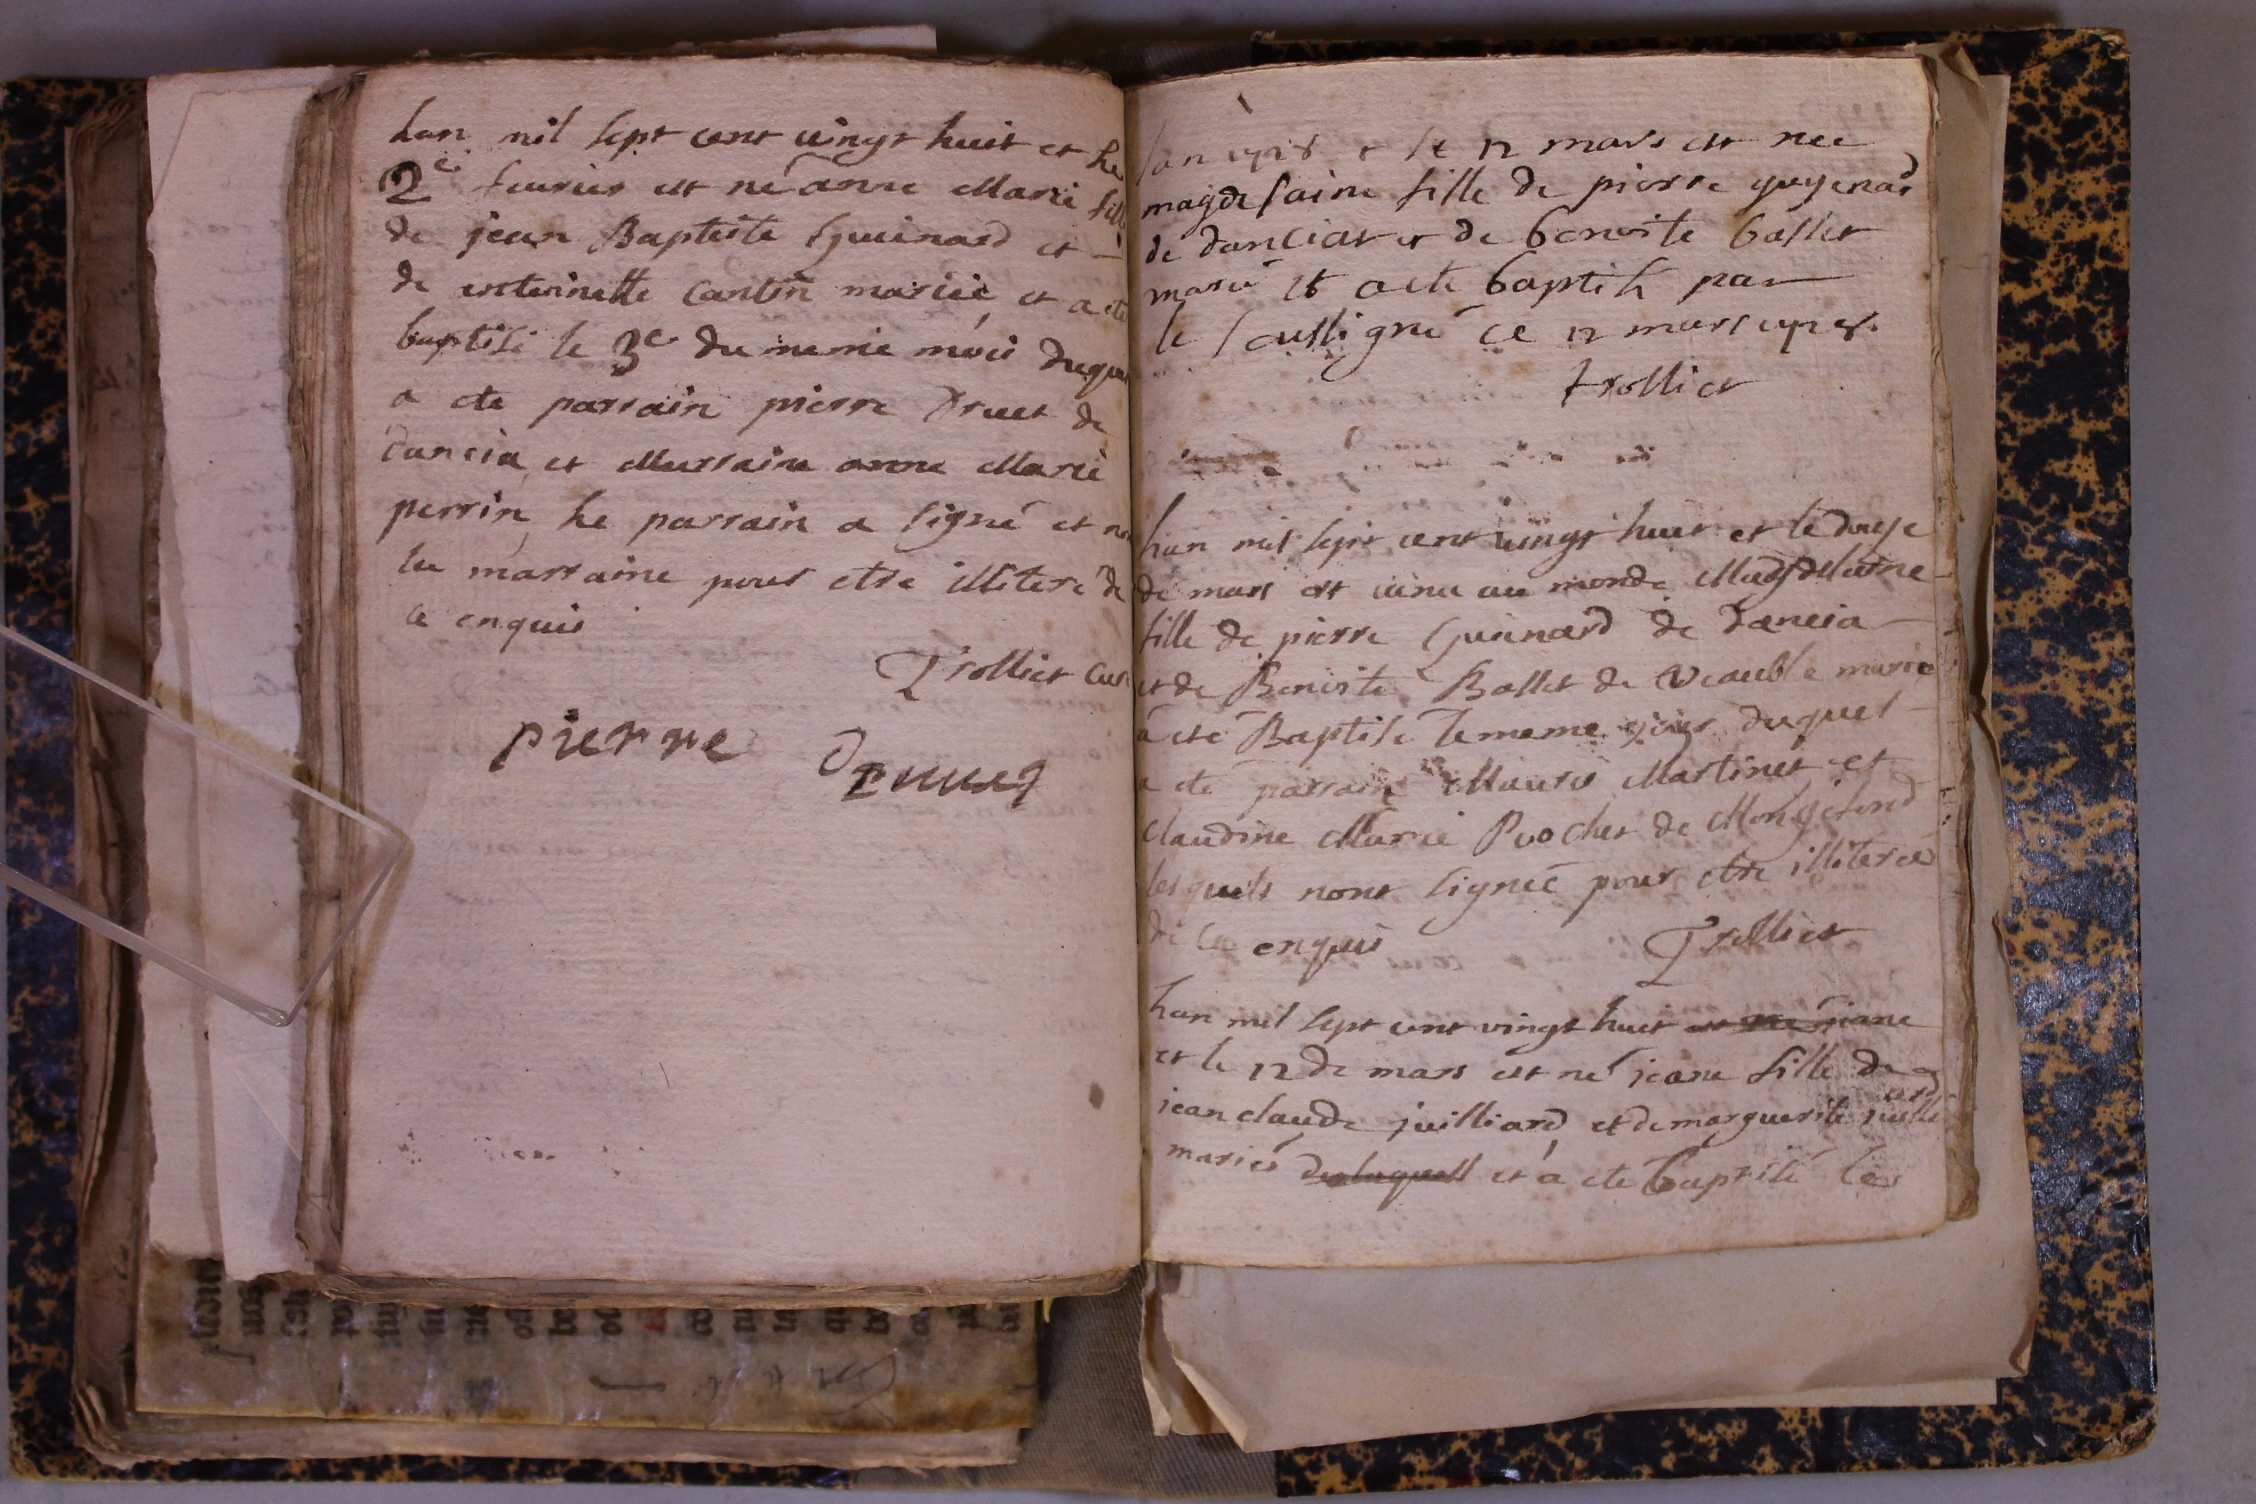 han mil sept cent vingt huit et he
2e feurier est né anne Marie fille
de jean Baptiste Guinard et
de entoinette cantin mariéé et a eté
baptisé le 3e du meme mois duquel
a ete parrain pierre Druet de
dancia et Marraine anne Marie
perrin he parrain a signé et non
la marraine pour etre illiteré de
ce enquis
Trolliet cur
pierre Druuet
lan 1728 et le 12 mars est nee
magdelaine fille de pierre guyenard
de danciat et de benoite ballet
marié et a ete baptisé par
le soussigné ce 12 mars 1728
trolliet
han mil sept cent vingt huit et le douze
de mars est venu au monde Magdelaine
fille de pierre Guinard de dancia
et de Benoite Ballet de veauble marié
a eté Baptisé le meme jour duquel
a ete parrain Mauris Martinet et
claudine Marie Pvochet de Mongefond
lesquels nont signéé pour etre illiteréé
de ce enquis
Trolliet
han mil sept cent vingt huit est né jeane
et le 12 de mars est né jeane fille de
jean claude juilliard et de marguerite juilliard
mariés de laquell et a ete baptisé le